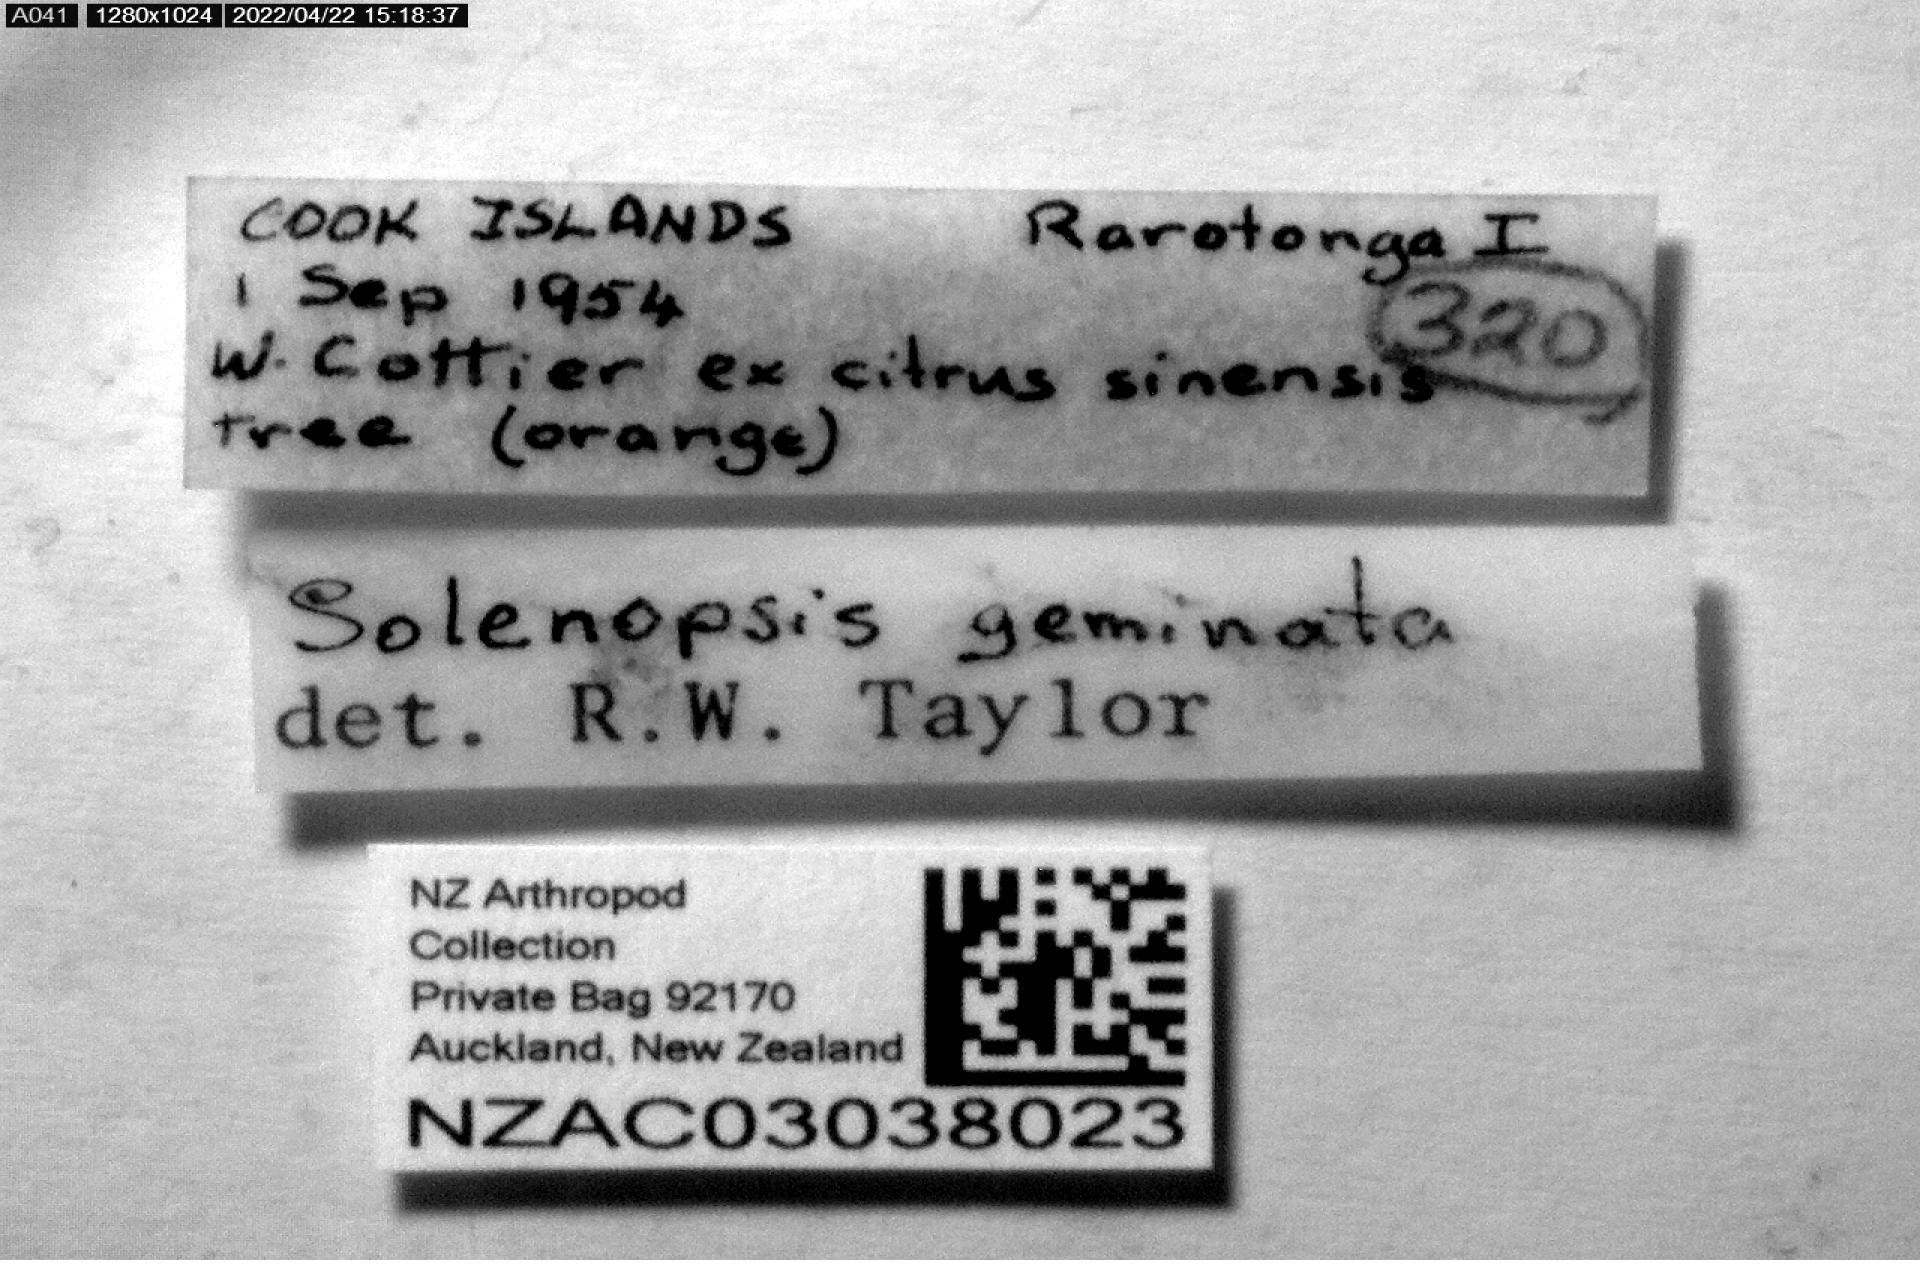 A041 1280x1024 2022/04/22 15:18:37
COOK ISLANDS Rarotonga I
1 Sep 1954 320
W. Cottier ex citrus sinensis
tree (orange)
Solenopsis geminata
det. R.W. Taylor
NZ Arthropod
Collection
Private Bag 92170
Auckland, New Zealand
NZAC03038023